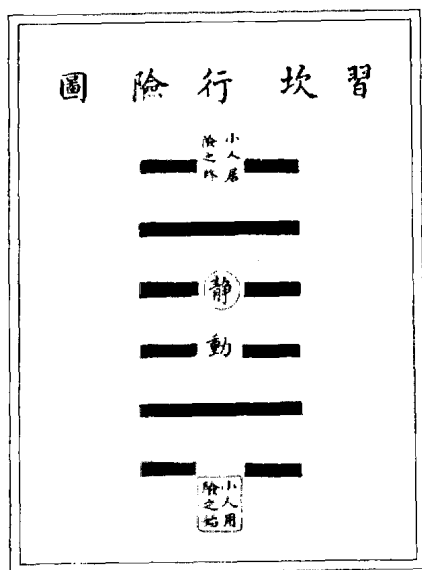 習坎行險圖
小人居
險之終
静
動
小人用
險之始